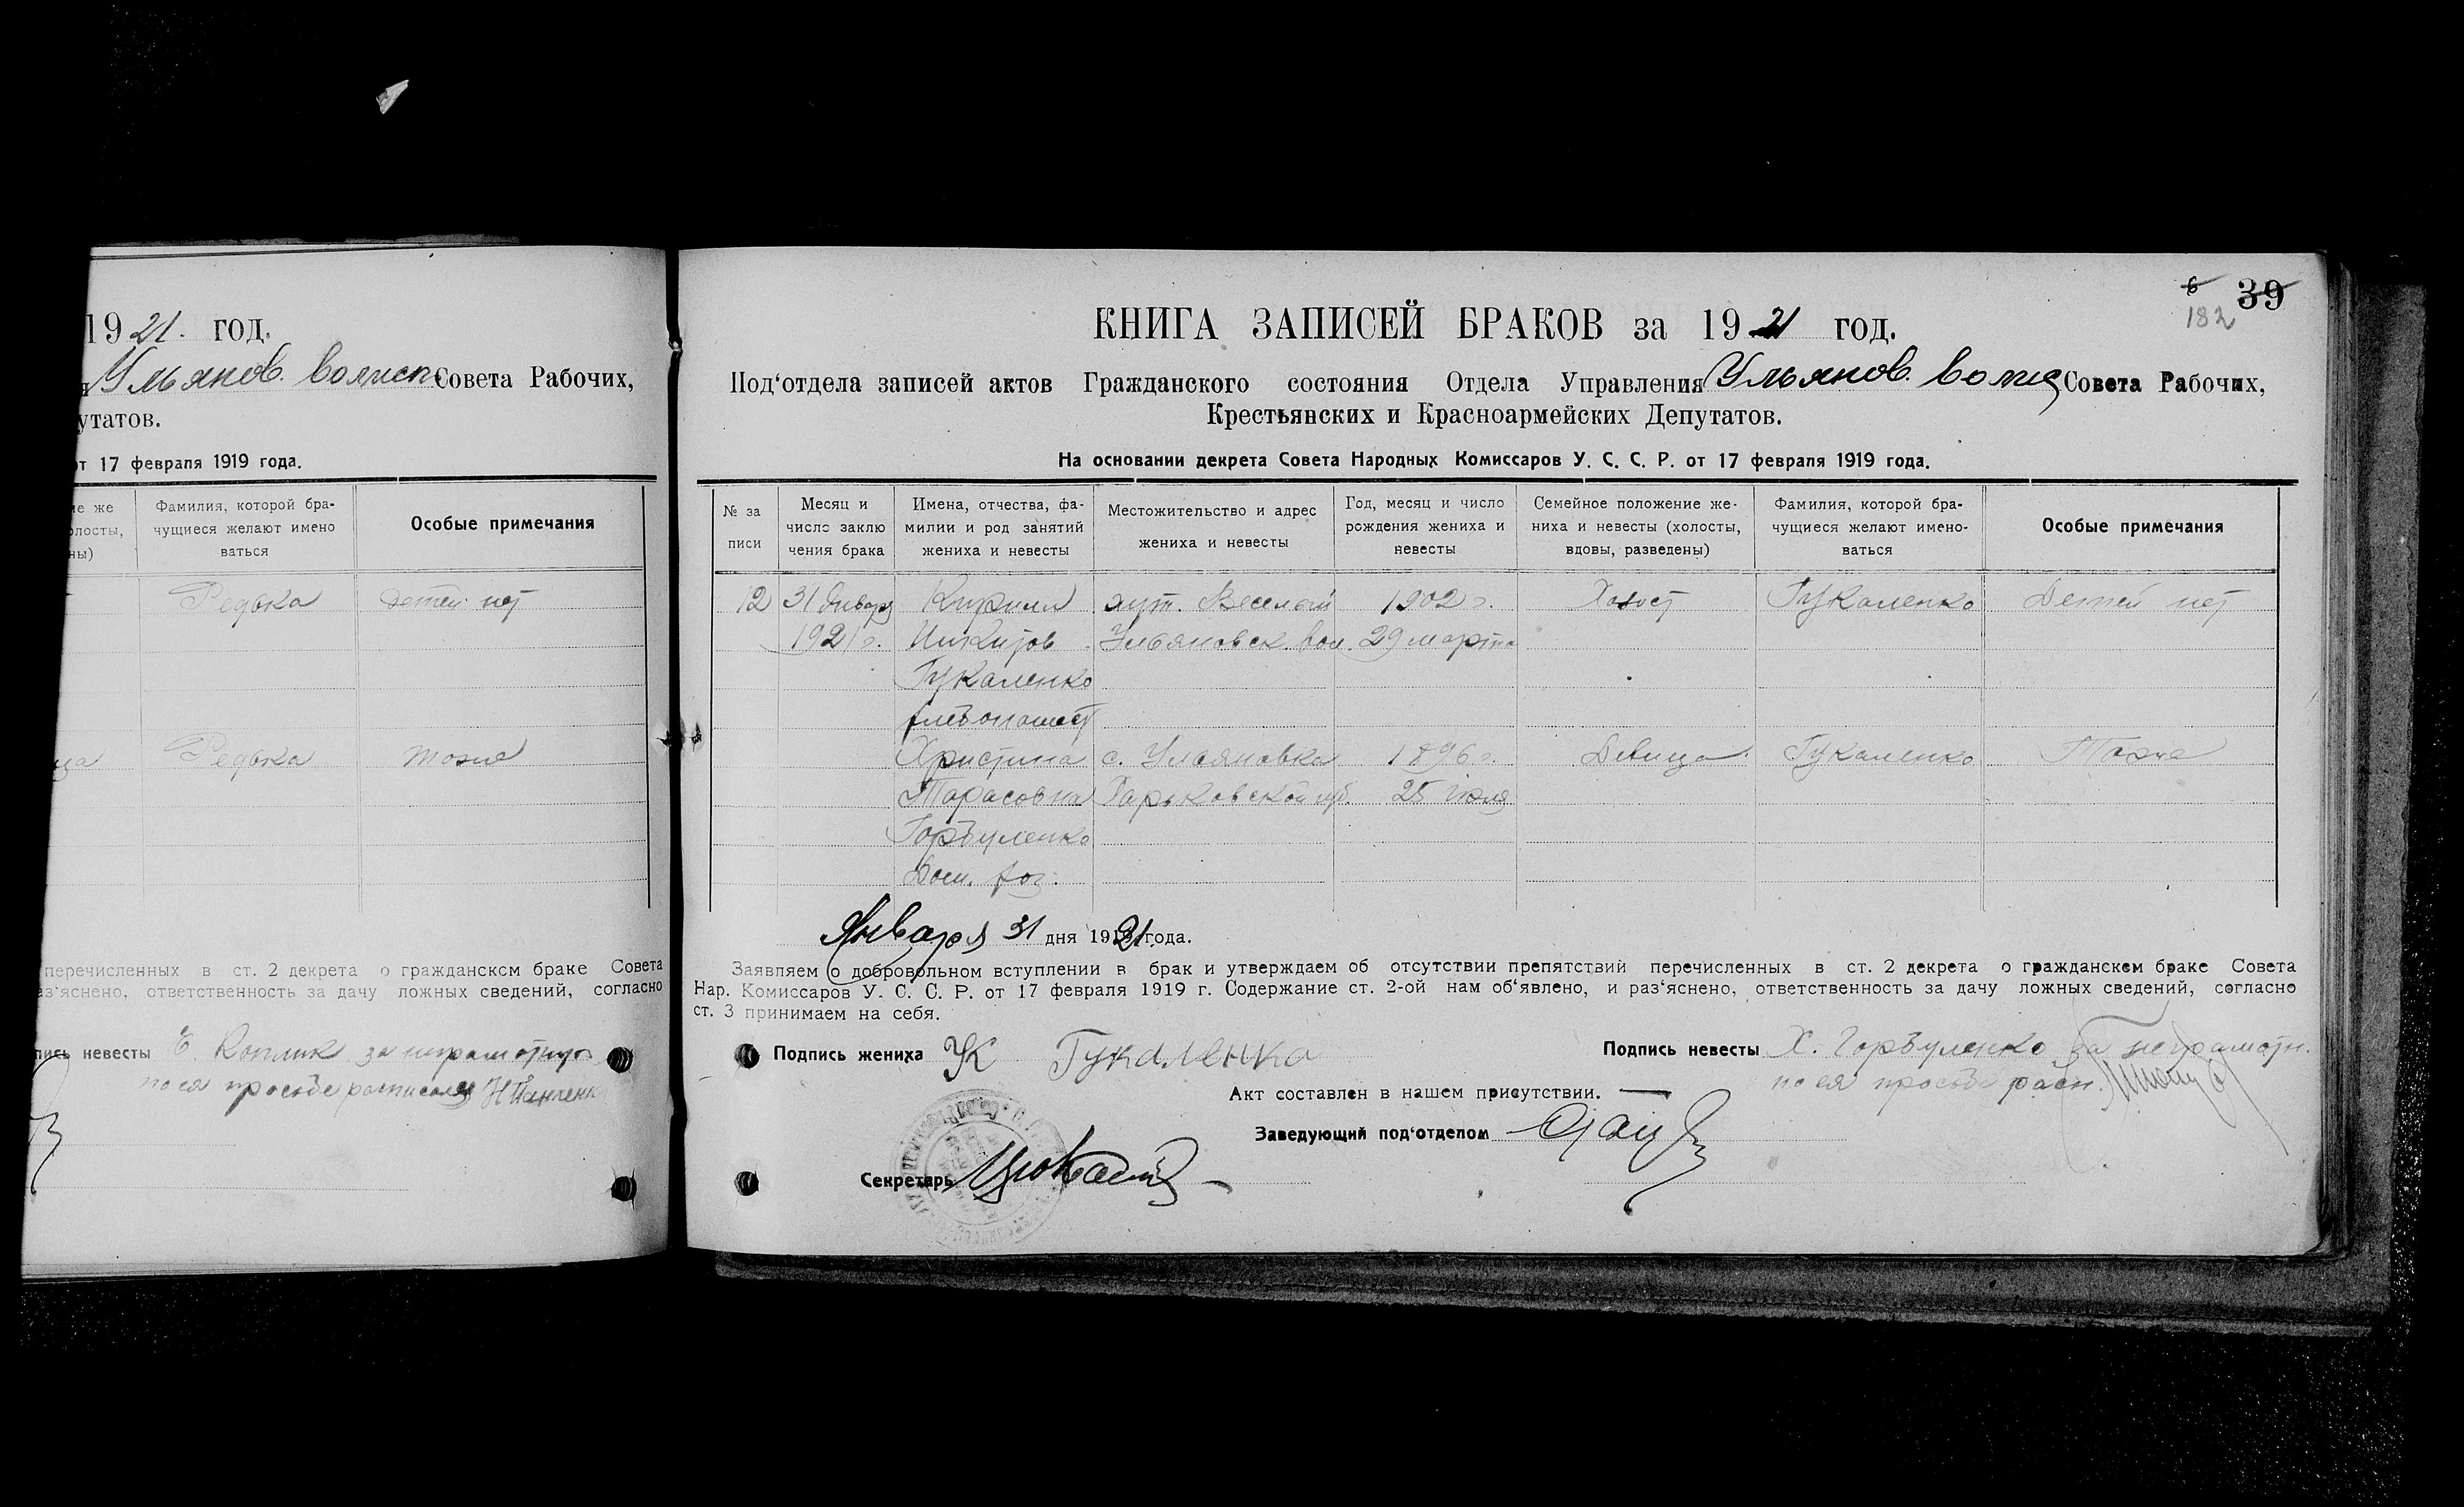 1921. год.
Ульянов. волисп. Совета Рабочих,
утатов.
от 17 февраля 1919 года.
ие же
олосты,
ны)
Фамилия, которой бра-
чущиеся желают имено
ваться
Особые примечания
Редька
Детей нет
ца
Редька
тоже
перечисленных в ст. 2 декрета о гражданском браке Совета
аз'яснено, ответственность за дачу ложных сведений, согласно
пись невесты Е. Коплик за неграмотную
по ея просьбе расписался
6
39
182
КНИГА ЗАПИСЕЙ БРАКОВ за 1921 год.
Под'отдела записей актов Гражданского состояния Отдела Управления Ульянов. волис Совета Рабочих,
Крестьянских и Красноармейских Депутатов.
На основании декрета Совета Народных Комиссаров У. С. С. Р. от 17 февраля 1919 года.
№ за
писи
Месяц и
число заклю
чения брака
Имена, отчества, фа-
милии и род занятий
жениха и невесты
Местожительство и адрес
жениха и невесты
Год, месяц и число
рождения жениха и
невесты
Семейное положение же-
ниха и невесты (холосты,
вдовы, разведены)
Фамилия, которой бра-
чущиеся желают имено-
ваться
Особые примечания
12 31 Января Кирилл хут. Веселый 1902 г. Холост Гукаленко Детей нет
1921 г. Никитов Ульяновск. вол. 29 марта
Гукаленко
хлебопашест
Христина с. Ульяновка 1896 г. Девица Гукаленко Тоже
Тарасовна Харьковской губ. 25 Июля
Горбуленко
Дом. хоз.
Января 31 дня 1921 года.
Заявляем о добровольном вступлении в брак и утверждаем об отсутствии препятствий перечисленных в ст. 2 декрета о гражданском браке Совета
Нар. Комиссаров У. С. С. Р. от 17 февраля 1919 г. Содержание ст. 2-ой нам об'явлено, и раз'яснено, ответственность за дачу ложных сведений, согласно
ст. 3 принимаем на себя.
Подпись жениха К Гукаленко
Подпись невесты Х. Горбуленко за неграмотн.
по ея просьбе расп.
Акт составлен в нашем присутствии.
Заведующий под'отделом
Секретарь